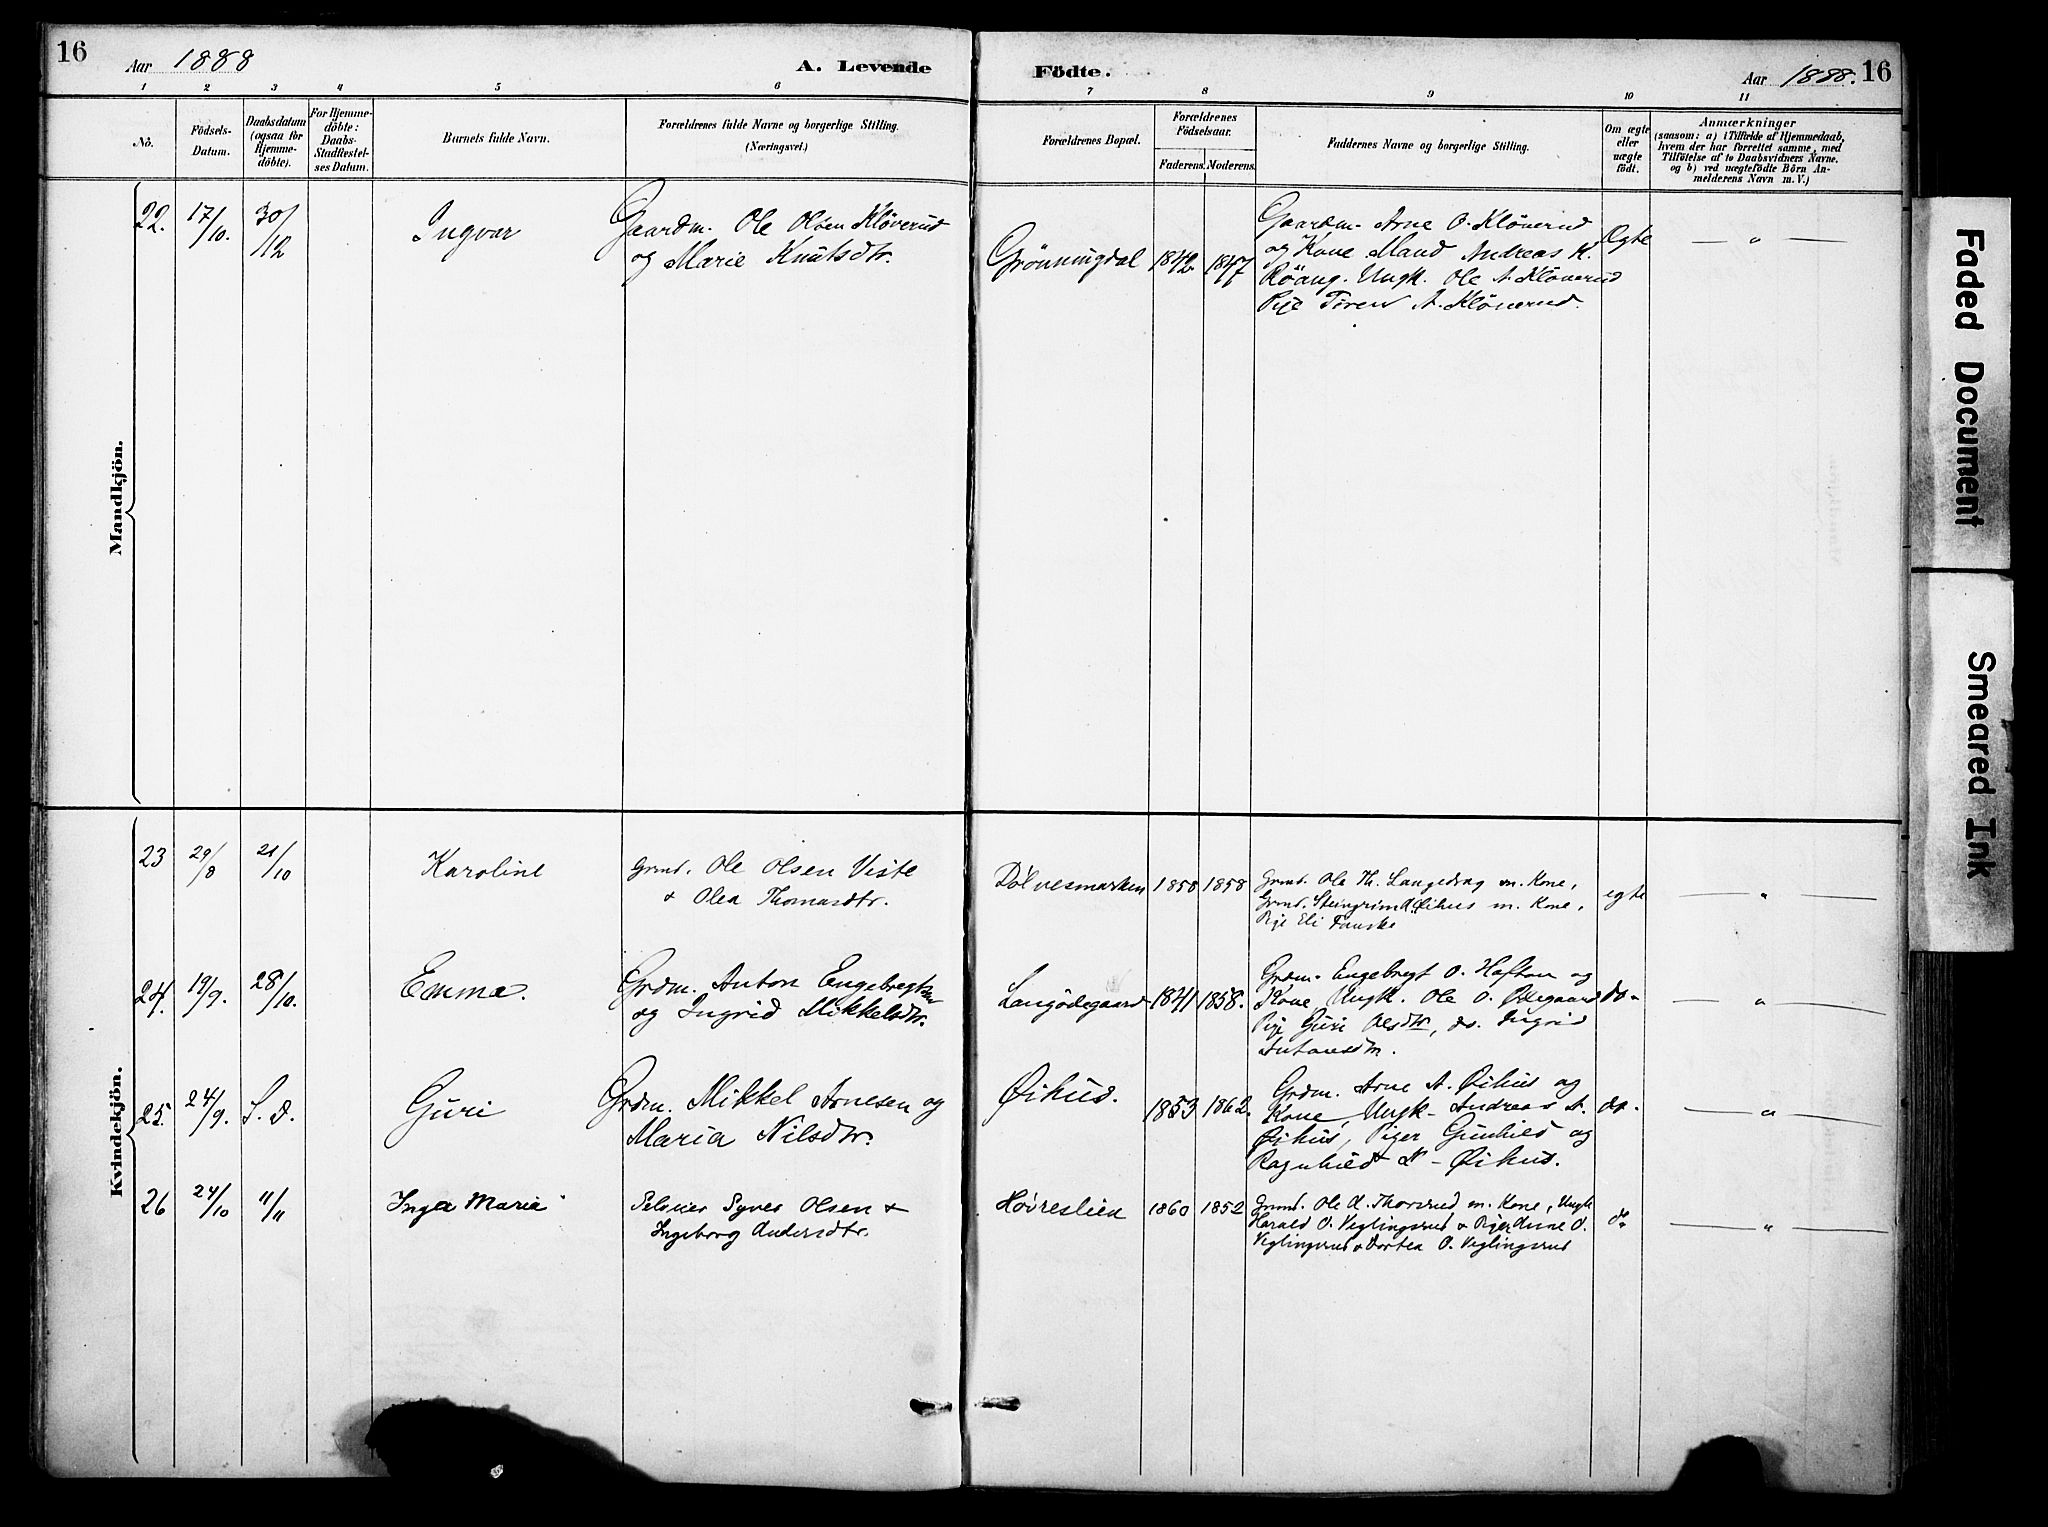 16
Aar 1888
A. Levende
Födte.
Aar 1888.
16
1 2 3 4 5 6 7 8 9 10 11
No.
Födsels-
Datum.
Daabsdatum
(ogsaa for
Hjemme-
döbte).
For Hjemme-
döbte:
Daabs-
Stadfæstel-
ses Datum.
Barnets fulde Navn.
Forældrenes fulde Navne og borgerlige Stilling.
(Næringsvei.)
Forældrenes Bopæl.
Forældrenes
Födselsaar.
Faderens. Moderens.
Faddernes Navne og borgerlige Stilling.
Om ægte
eller
uægte
födt.
Anmærkninger
(saasom: a) i Tilfælde af Hjemmedaab,
hvem der har forrettet samme, med
Tilföielse af to Daabsvidners Navne.
og b) ved uægtefödte Börn An-
melderens Navn m. V.)
Mandkjön.
22. 17/10. 30/12 Ingvar
Gaardm. Ole Olsen Kløverud
og Marie Knutsdtr.
Grönningdal 1842 1847
Gaardm. Arne O. Klöverud
og Kone Maud Andreas K.
Röang. Ungk. Ole A. Klöverud
Pige Toren A. Klöverud.
Ægte — " —
Kvindekjön.
23 29/8 21/10 Karoline
Grmd. Ole Olsen Viste
& Olea Thomasdtr.
Dölvesmarken 1858 1858
Grmd. Ole Th. Langedrag m. Kone,
Grmd. Steingrim Øihus m. Kone,
Pige Eli Fauske
egte — " —
24. 19/9. 28/10. Emma.
Grdm. Anton Engebregtsen
og Ingrid Mikkelsdtr.
Langödegaard 1841 1858.
Grdm. Engebregt O. Hafton og
Kone, Ungk. Ole O. Ødegaard
Pige Guri Olsdtr, do. Ingrid
Antonsdtr.
do. — " —
25. 24/9. S. D. Guri
Grdm. Mikkel Arnesen og
Maria Nilsdtr.
Øihus. 1853 1862.
Grdm. Arne A. Øihus og
Kone, Ungk. Andreas A.
Øihus, Piger Gunhild og
Ragnhild N. Øihus.
do. — " —
26 24/10 11/11 Inga Marie
Syver Olsen &
Ingeborg Andersdtr.
Høvreslien 1860 1852
Grmd. Ole K. Thorsrud m. Kone, Ungk
Harald O. Veglingsrud & Pige Anne O.
Veglingsrud & Dortea O. Veglingsrud
do — " —
Faded Document
Smeared Ink